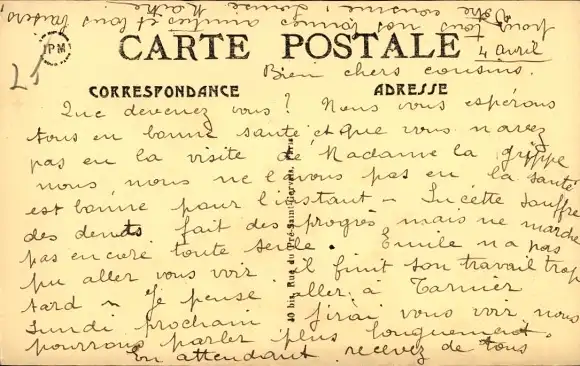 IPM
CARTE POSTALE
25
4 avril
Bien chers cousins.
CORRESPONDANCE
ADRESSE
Que devenez vous? Nous vous espérons
tous en bonne santé et que vous n'avez
pas eu la visite de Madame la grippe
nous, nous ne l'avons pas eu la santé
est bonne pour l'instant — Lucette souffre
des dents fait des progrès mais ne marche
pas encore toute seule. Émile n'a pas
pu aller vous voir il finit son travail trop
tard — Je pense aller à Tarnier
Lundi prochain j'irai vous voir nous
pourrons parler plus longuement.
En attendant recevez de tous
pour tous nos bonnes amitiés et tous baisers
Votre cousine, Louise,
40 bis, Rue du Pré-Saint-Gervais, Paris